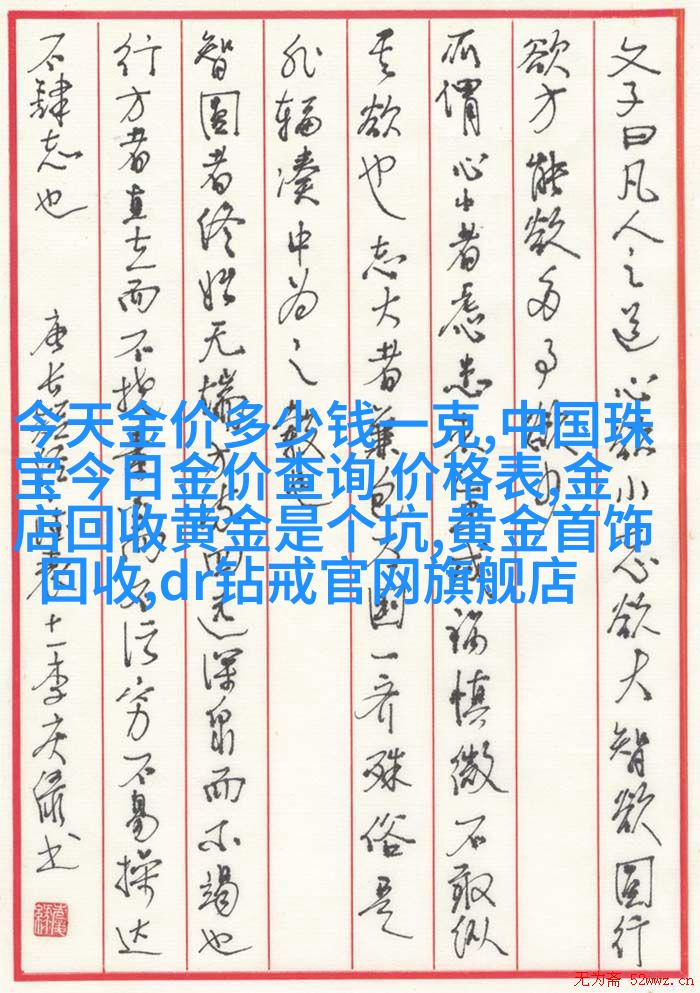 文子曰凡人之道心欲小志欲大智欲圆行
欲方能欲多事欲少
所谓心小者虑患未生戒祸慎微不敢纵
其欲也志大者兼包万国一齐殊俗是
非辐凑中为之毂也
智圆者终始无端方流四远深泉而不竭也
行方者直立而不挠素白而不污穷不易操达
不肆志也
唐长 十一李庆绿书
今天金价多少钱一克,中国珠
宝今日金价查询 价格表,金
店回收黄金是个坑,黄金首饰
回收,dr钻戒官网旗舰店
无为斋 52wwz.cn